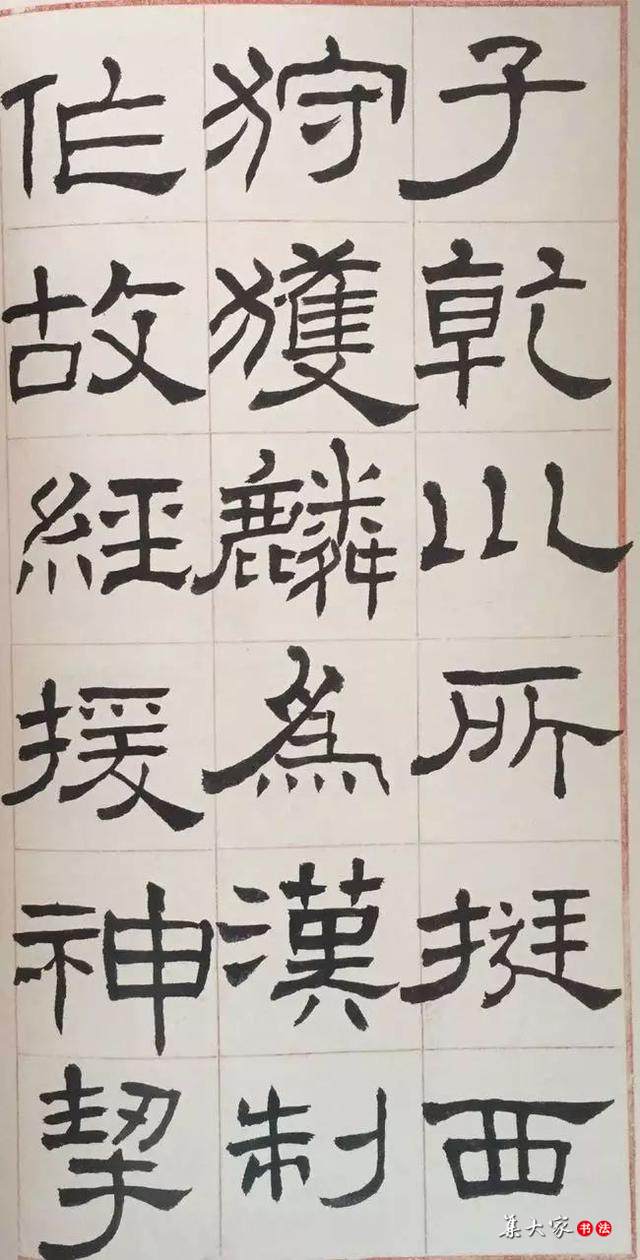 子乾川所挺西
狩獲麟為漢制
作故經援神挈
集大家书法